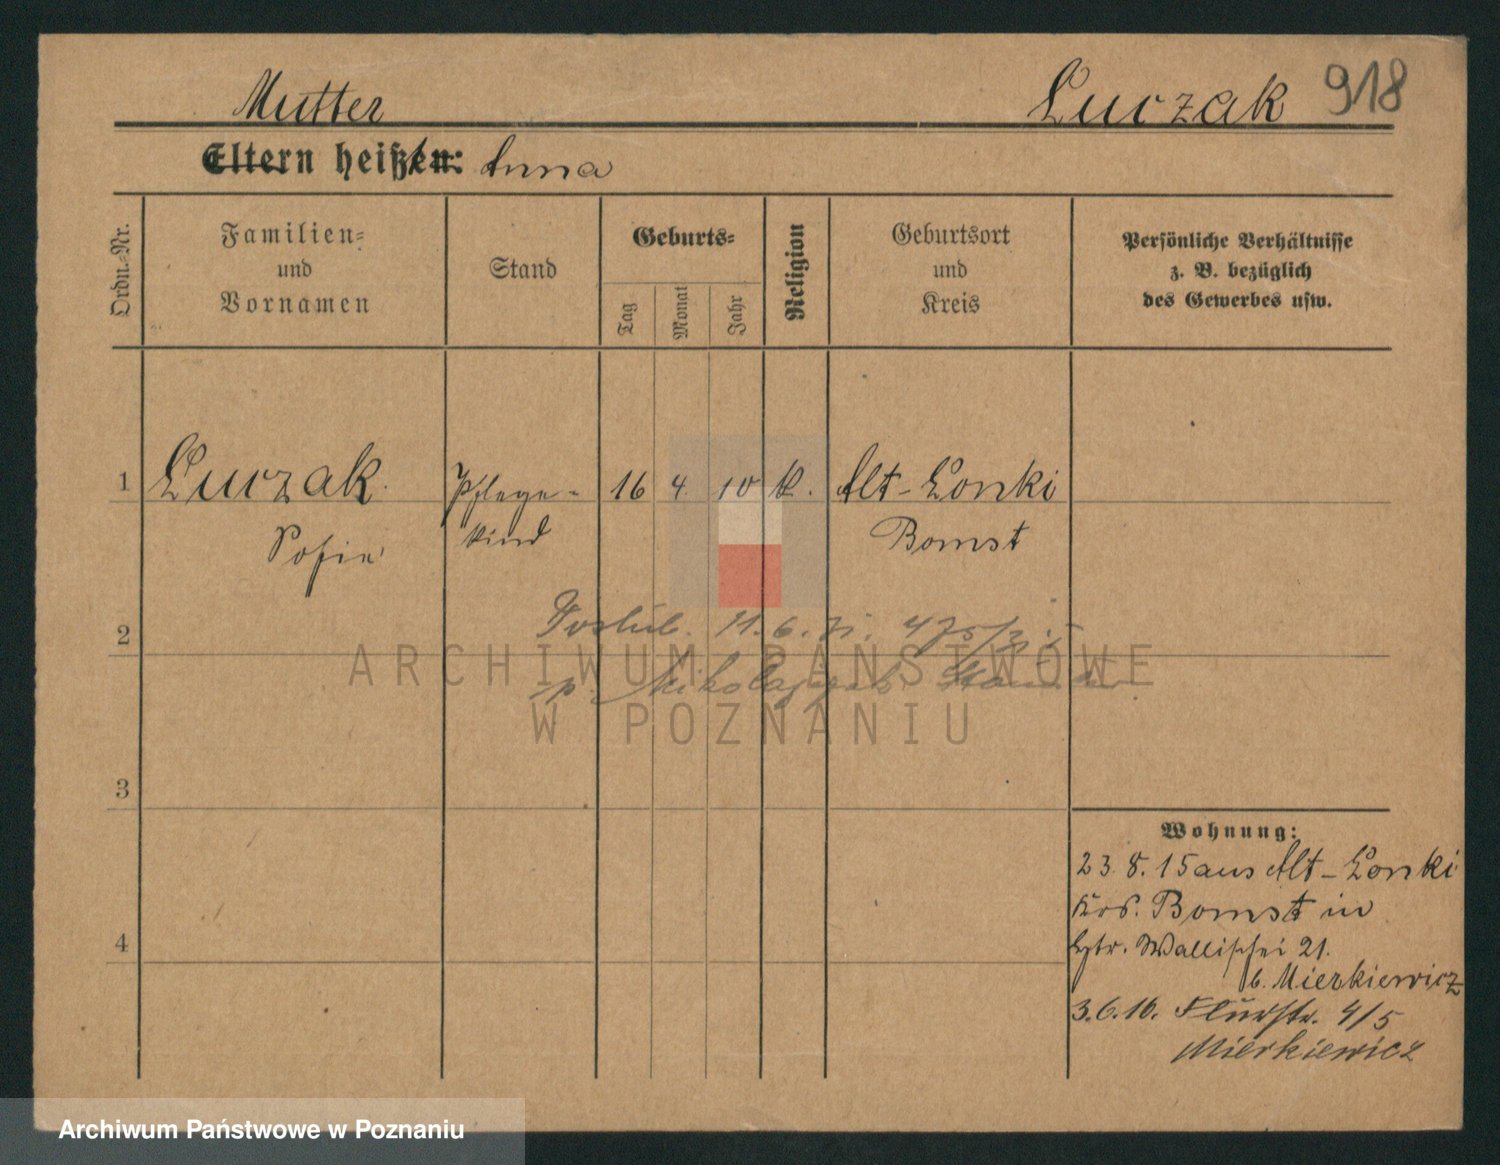 Mutter Luczak 918
Eltern heißen: Anna
Ordn.-Nr.
Familien-
und
Vornamen
Stand
Geburts-
Tag
Monat
Jahr
Religion
Geburtsort
und
Kreis
Persönliche Verhältnisse
z. B. bezüglich
des Gewerbes usw.
1 Luczak Pflege- 16 4. 10 k. Alt-Lonki
Sofie kind Bomst
2
11. 6.
p. Mikolajczak
ARCHIWUM PAŃSTWOWE
W POZNANIU
3
4
Wohnung:
23. 8. 15 aus Alt-Lonki
Krs. Bomst in
Wallischei 21.
b. Mierkiewicz
3. 6. 16. Flurstr. 4/5
Mierkiewicz
Archiwum Państwowe w Poznaniu